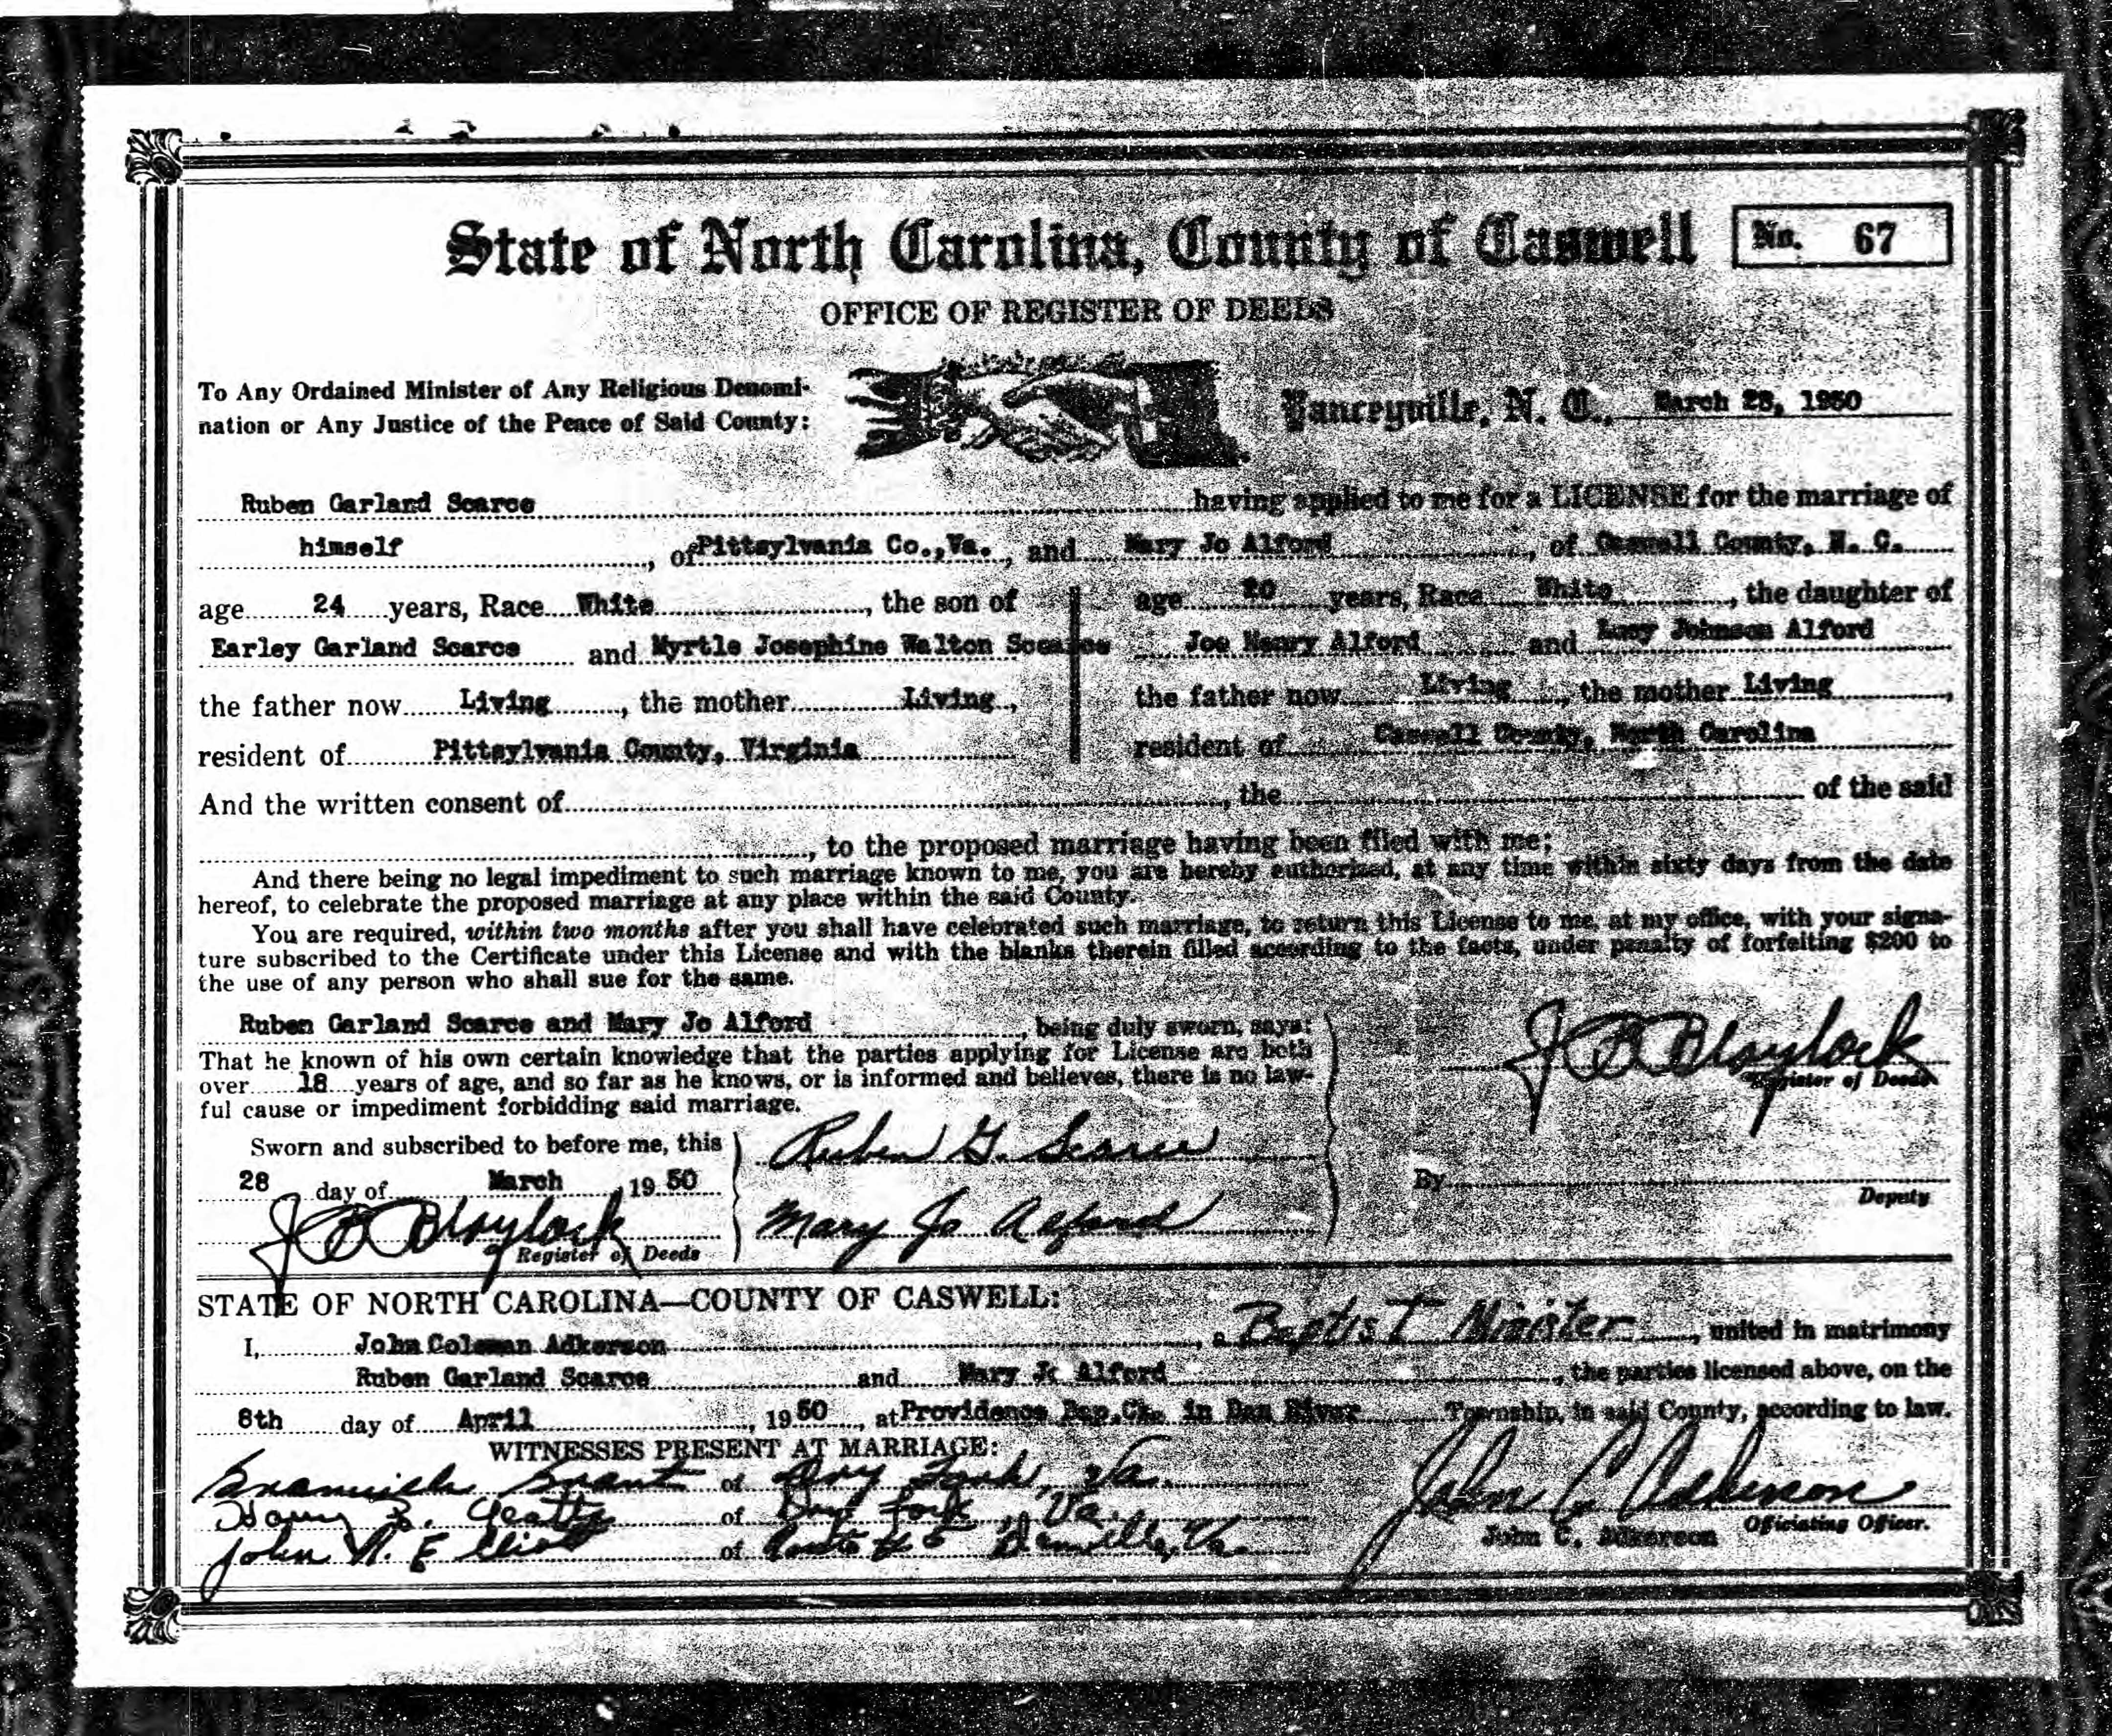 State of North Carolina, County of Caswell No. 67
OFFICE OF REGISTER OF DEEDS
To Any Ordained Minister of Any Religious Denomi-
nation or Any Justice of the Peace of Said County:
Yanceyville, N. C., March 28, 1950
Ruben Garland Scarce having applied to me for a LICENSE for the marriage of
himself, of Pittsylvania Co., Va., and Mary Jo Alford, of Caswell County, N. C.
age 24 years, Race White, the son of
Earley Garland Scarce and Myrtle Josephine Walton Scearce
the father now Living, the mother Living,
resident of Pittsylvania County, Virginia
age 20 years, Race White, the daughter of
Joe Henry Alford and Lucy Johnson Alford
the father now Living, the mother Living,
resident of Caswell County, North Carolina
And the written consent of, the of the said
, to the proposed marriage having been filed with me;
And there being no legal impediment to such marriage known to me, you are hereby authorized, at any time within sixty days from the date
hereof, to celebrate the proposed marriage at any place within the said County.
You are required, within two months after you shall have celebrated such marriage, to return this License to me, at my office, with your signa-
ture subscribed to the Certificate under this License and with the blanks therein filled according to the facts, under penalty of forfeiting $200 to
the use of any person who shall sue for the same.
Ruben Garland Scarce and Mary Jo Alford, being duly sworn, says:
That he known of his own certain knowledge that the parties applying for License are both
over 18 years of age, and so far as he knows, or is informed and believes, there is no law-
ful cause or impediment forbidding said marriage.
J B Blaylock
Register of Deeds
Sworn and subscribed to before me, this
28 day of March, 19 50
J B Blaylock
Register of Deeds
Ruben G. Scarce
Mary Jo Alford
By
Deputy
STATE OF NORTH CAROLINA—COUNTY OF CASWELL:
I, John Coleman Adkerson, a Baptist Minister, united in matrimony
Ruben Garland Scarce and Mary Jo Alford, the parties licensed above, on the
8th day of April, 19 50, at Providence Bap. Ch. in Dan River Township, in said County, according to law.
WITNESSES PRESENT AT MARRIAGE:
Grant of Dry Fork, Va.
Harry of Dry Fork, Va.
John Elliott of Route # 5 Danville, Va.
John C Adkerson
John C. Adkerson Officiating Officer.